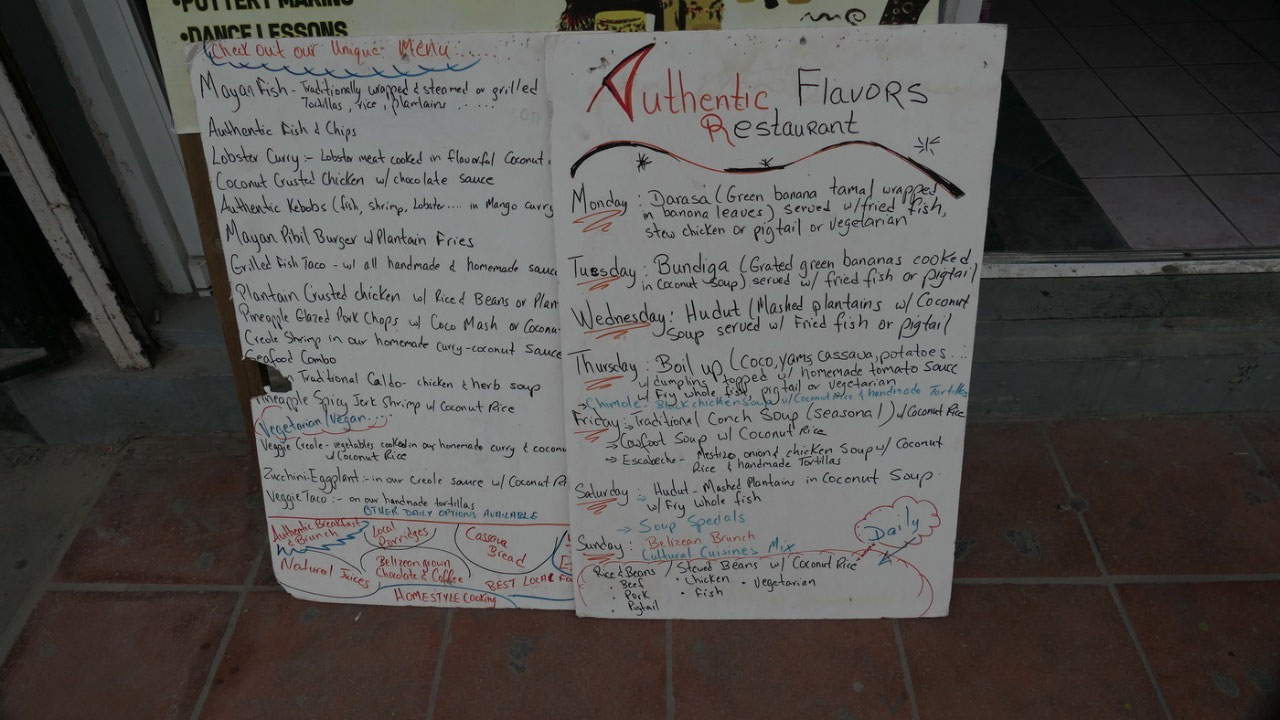 •POTTERY MAKING
•DANCE LESSONS
me
Check out our Unique Menu.....
Mayan Fish - Traditionally wrapped & steamed or grilled
Tortillas, rice, plantains .....
Authentic Fish & Chips
Lobster Curry:- Lobster meat cooked in flavorful Coconut
Coconut Crusted Chicken w/ chocolate sauce
Authentic Kebobs (fish, shrimp, Lobster.... in Mango curry
Mayan Pibil Burger w/ Plantain Fries
Grilled Fish Taco - w/ all handmade & homemade sauce
Plantain Crusted chicken w/ Rice & Beans or Plan
Pineapple Glazed Pork Chops w/ Coco Mash or Coconu
Creole Shrimp in our homemade curry-coconut sauce
Seafood Combo
Traditional Caldo- chicken & herb soup
ineapple Spicy Jerk Shrimp w/ Coconut Rice
Vegetarian/Vegan...
Veggie Creole - vegetables cooked in our homemade curry & cocon
w/ Coconut Rice
Zucchini-Eggplant:- in our Creole sauce w/ Coconut Ri
Veggie Taco:- on our handmade tortillas
OTHER DAILY OPTIONS AVAILABLE
Authentic Breakfast
& Brunch
Local
Porridges
Cassava
Bread
Natural Juices
Belizean grown
Chocolate & Coffee
BEST LOCAL FO
HOMESTYLE Cooking
Authentic Flavors
Restaurant
Monday: Darasa (Green banana tamal wrapped
in banana leaves) served w/ fried fish,
stew chicken or pigtail or vegetarian
Tuesday: Bundiga (Grated green bananas cooked
in Coconut Soup) served w/ fried fish or pigtail
Wednesday: Hudut (Mashed plantains w/ Coconut
Soup served w/ Fried fish or pigtail
Thursday: Boil up (Coco, yams, cassava, potatoes...
w/ dumpling topped w/ homemade tomato sauce
w/ Fry whole fish, pigtail or vegetarian
→Chimole- Black chicken soup w/ Coconut Rice & handmade Tortillas
Friday:→Traditional Conch Soup (seasonal) w/ Coconut Rice
→Cowfoot Soup w/ Coconut Rice
→Escabeche- Mestizo onion & chicken soup w/ Coconut
Rice & handmade Tortillas
Saturday:- Hudut - Mashed Plantains in Coconut Soup
w/ Fry whole fish
→ Soup Specials
Sunday: Belizean Brunch
Cultural Cuisines Mix
Daily
Rice & Beans / Stewed Beans w/ Coconut Rice
• Beef • Chicken • Vegetarian
• Pork • Fish
• Pigtail